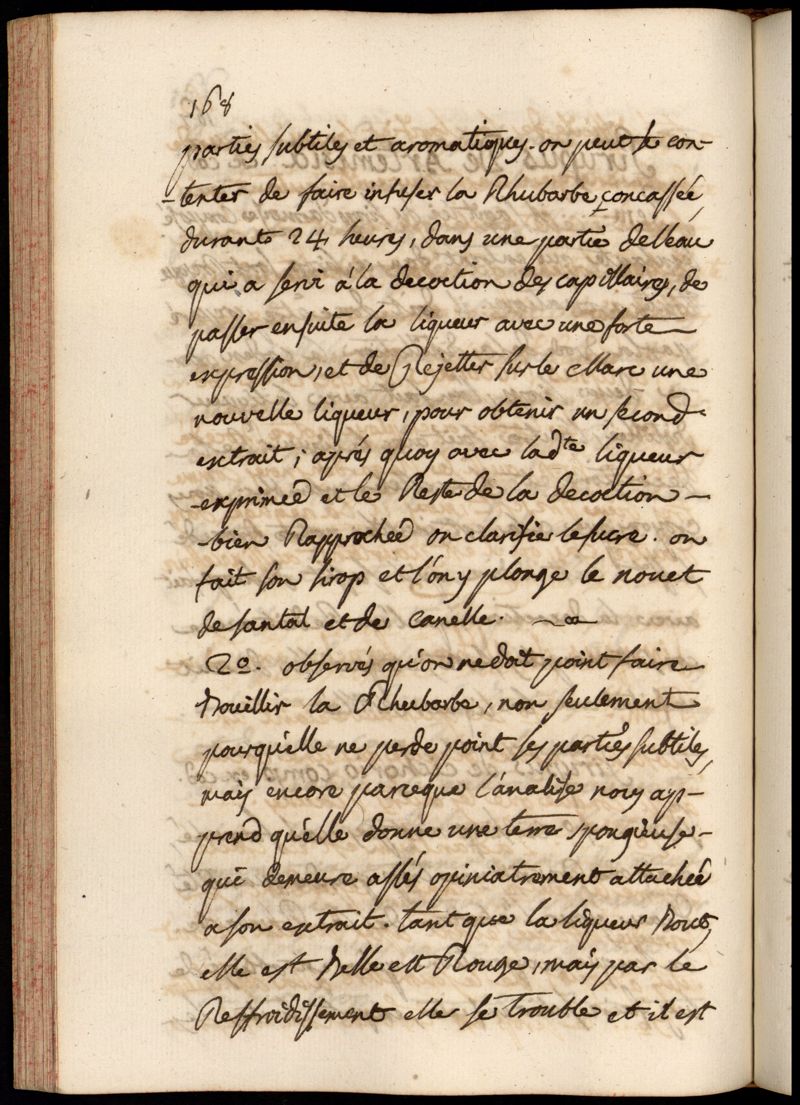 168
parties subtiles et aromatiques. on peut se con-
-tenter de faire infuser la Rhubarbe concassée,
durant 24 heures, dans une partie de l'eau
qui a servi á la decoction des capillaires, de
passer ensuite la liqueur avec une forte
expression, et de Rejetter sur le Marc une
nouvelle liqueur, pour obtenir un second
extrait; aprés quoy avec lad.te liqueur
-exprimeé et le Reste de la decoction -
-bien Rapprocheé on clarifie le sucre. on
fait son sirop et l'on y plonge le nouet
de santal et de canelle.
2o. observés qu'on ne doit point faire
Bouillir la Rheubarbe, non seulement
pourqu'elle ne perde point ses parties subtiles,
mais encore parceque l'analise nous ap-
prend qu'elle donne une terre spongieuse -
qui demeure assés opiniatrement attacheé
a son extrait. tant que la liqueur Bout,
elle est Belle et Rouge, mais par le
Reffroidissement elle se trouble et il est